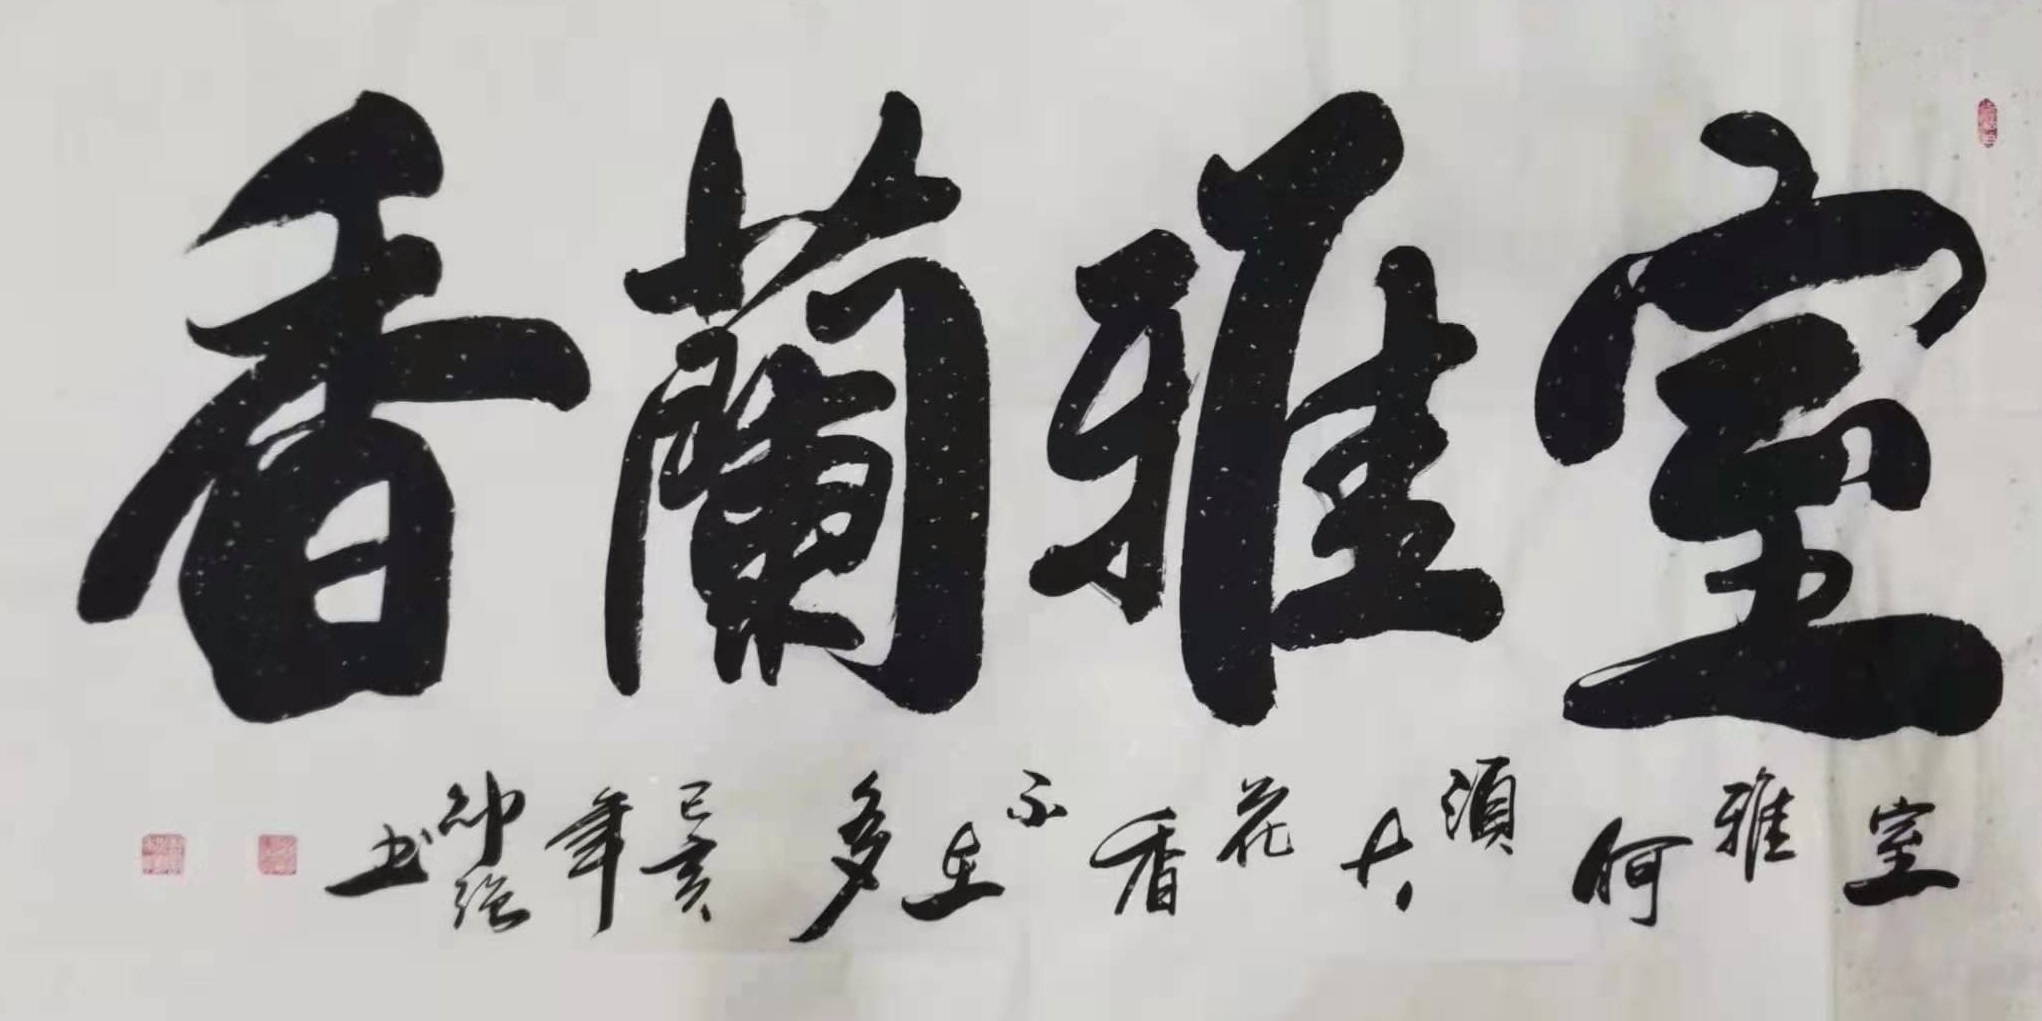 室雅蘭香
室雅何須大花香不在多己亥年 書